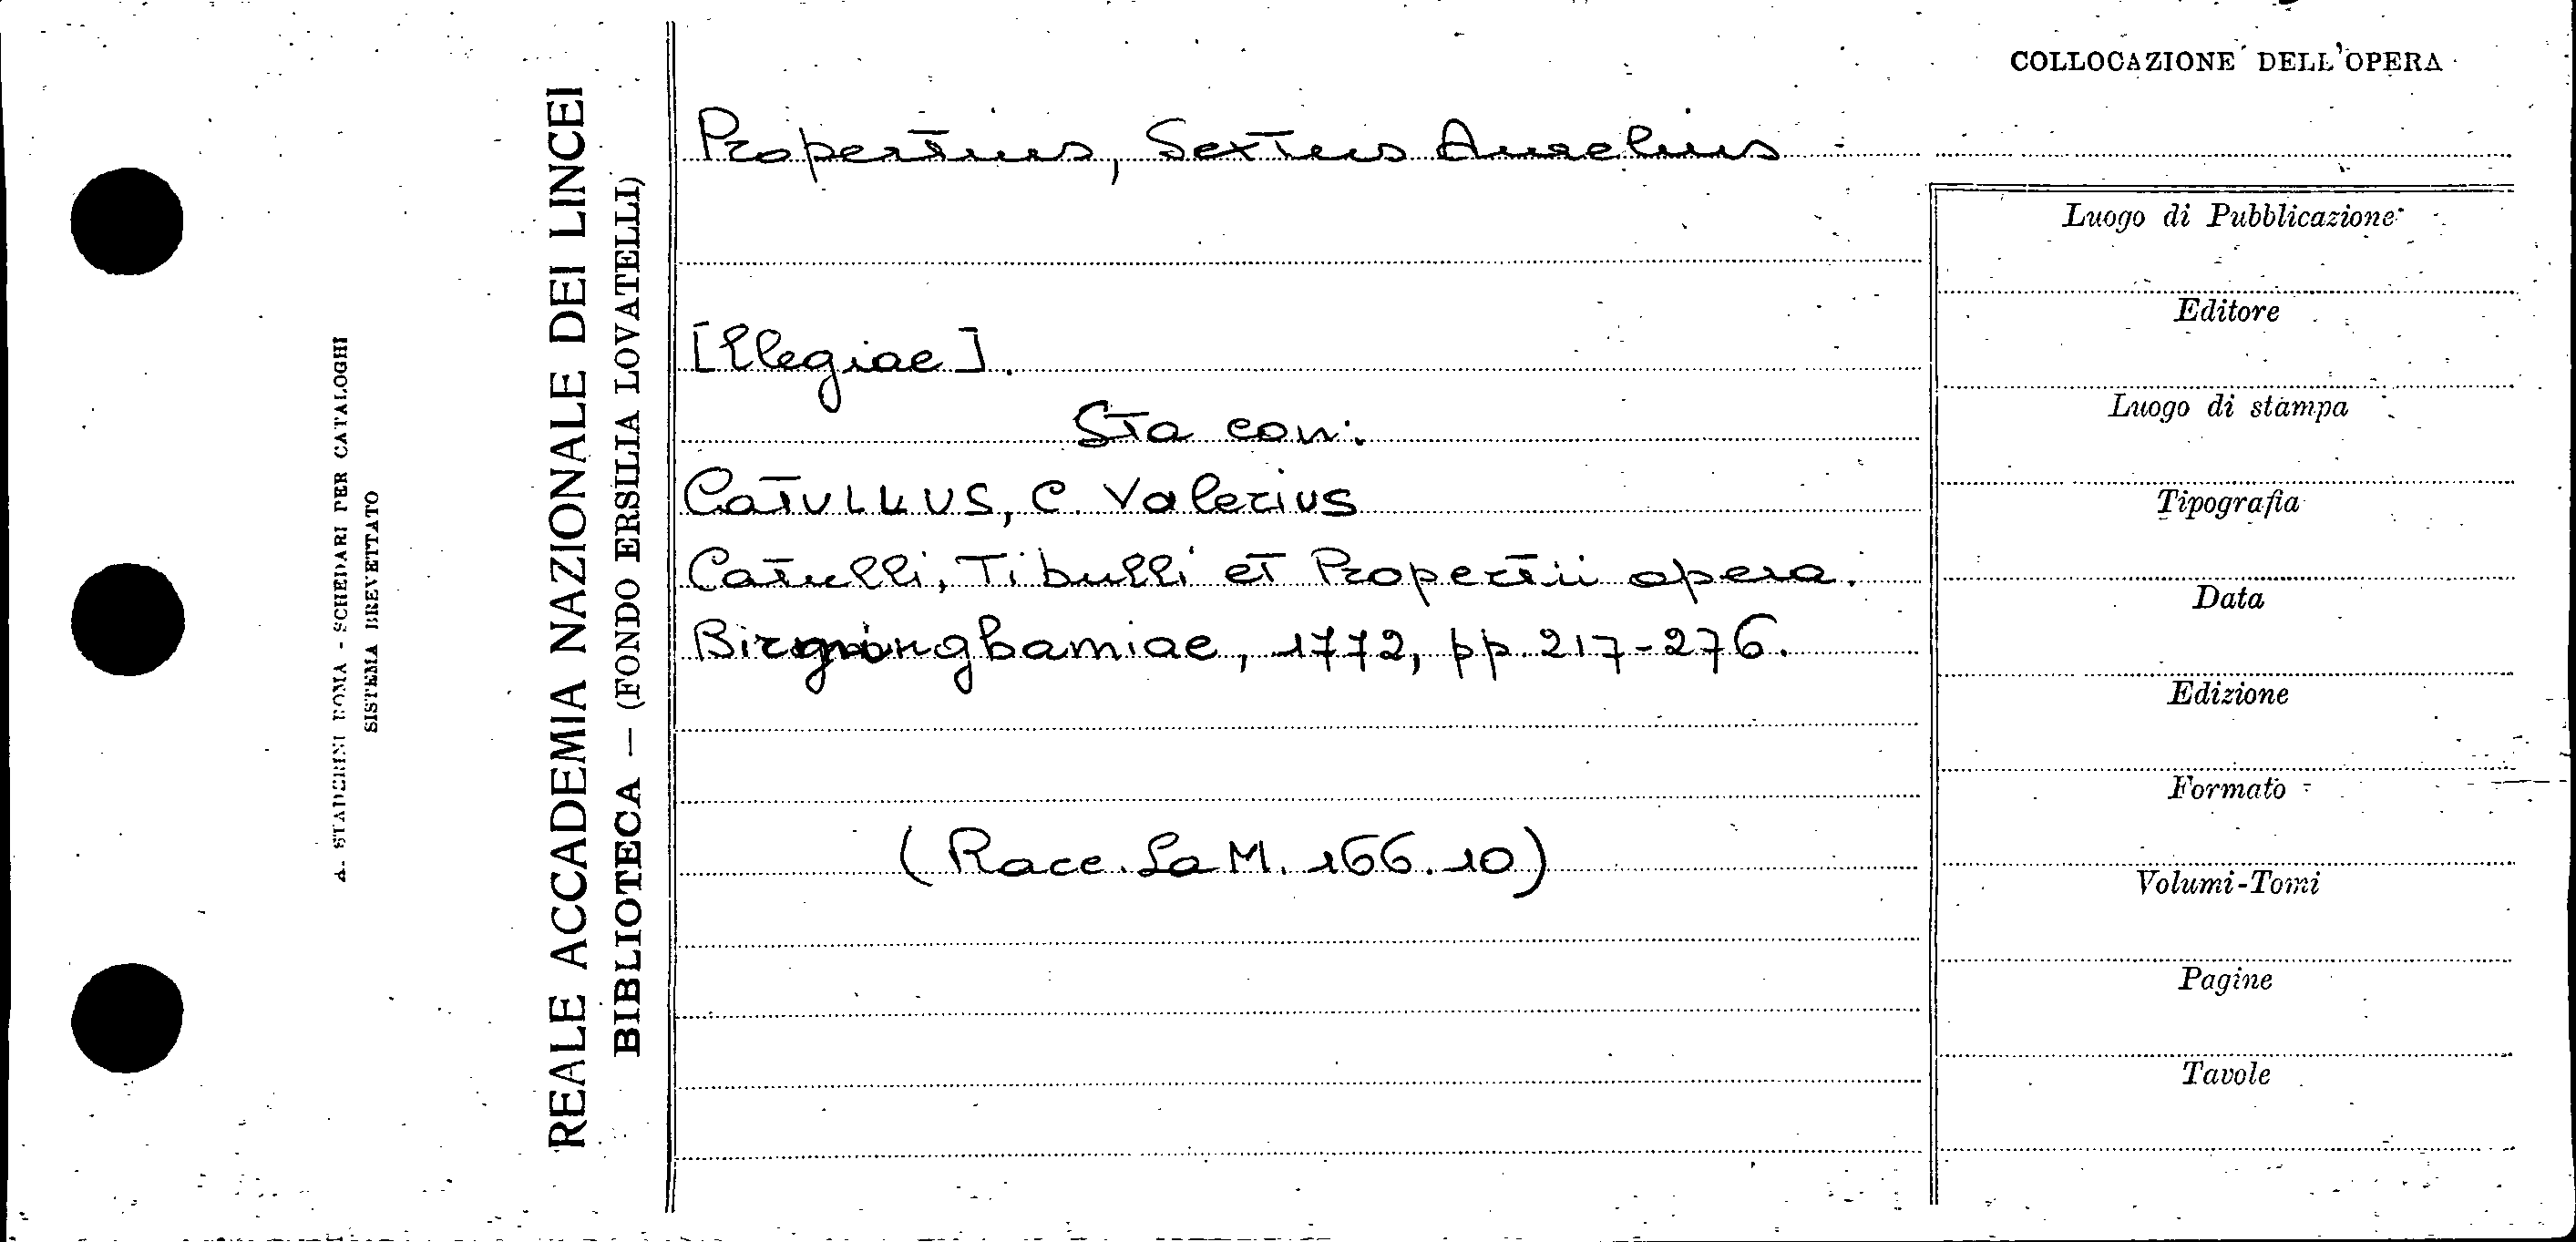 A. STADERINI ROMA - SCHEDARI PER CATALOGHI
SISTEMA BREVETTATO
REALE ACCADEMIA NAZIONALE DEI LINCEI
BIBLIOTECA — (FONDO ERSILIA LOVATELLI)
Propertius, Sextus Aurelius
[Elegiae].
Sta con:
Catullus, C. Valerius
Catulli, Tibulli et Propertii opera.
Birminghamiae, 1772, pp. 217-276.
(Racc. La M. 166.10)
COLLOCAZIONE DELL'OPERA
Luogo di Pubblicazione
Editore
Luogo di stampa
Tipografia
Data
Edizione
Formato
Volumi-Tomi
Pagine
Tavole